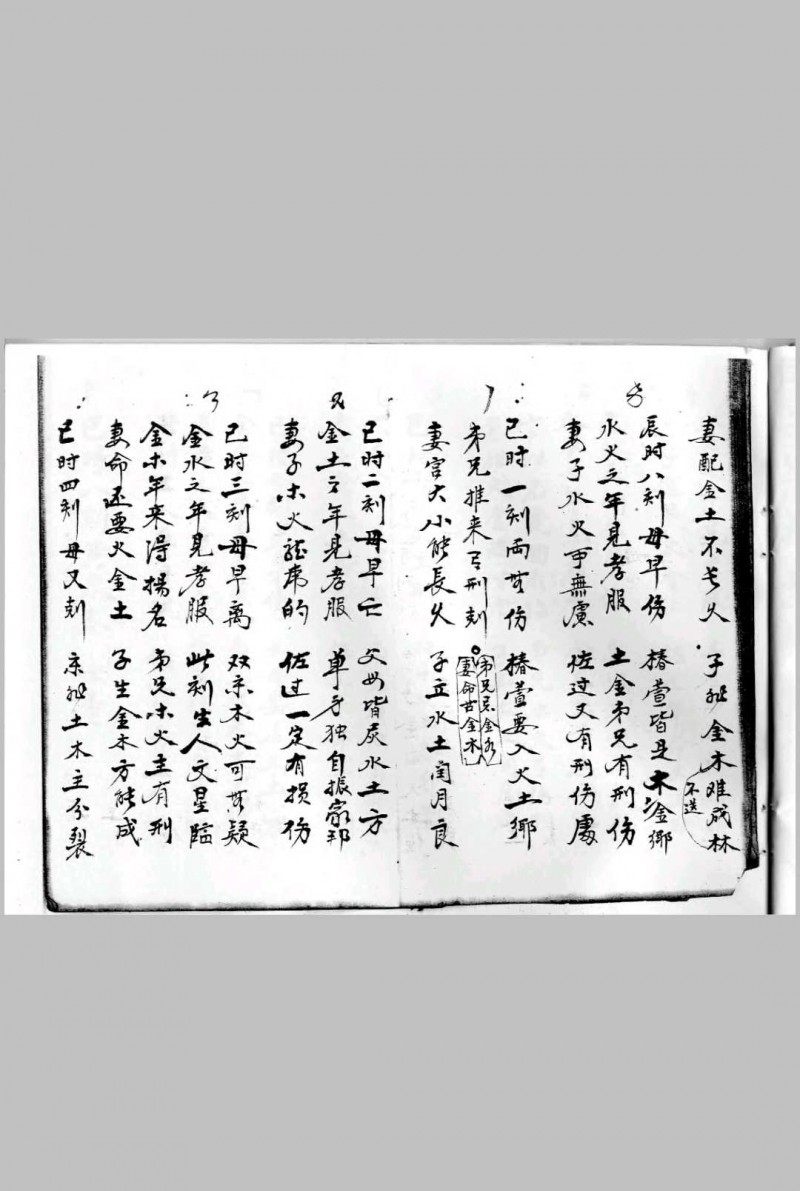 妻配金土不长久　子 金木难成林
不送
辰时八刻母早伤　椿萱皆是木金鄉
水火之年見孝服　土金弟兄有刑伤
妻子水火可無慮　佐过又有刑伤處
巳时一刻两 伤　椿萱要入火土鄉
弟兄推来 刑刻　弟兄 金水
妻命 金木
妻宫大小能長久　子立水土闰月良
巳时二刻母早亡　父母皆 水土方
金土之年見孝服　单 独自振家邦
妻子木火 的　佐过一定有损伤
巳时三刻母早离　双亲木火可 疑
金水之年見孝服　此刻生人文星臨
金木年来得揚名　弟兄木火主有刑
妻命还要火金土　子生金木方能成
巳时四刻母又刻　 土木主分裂